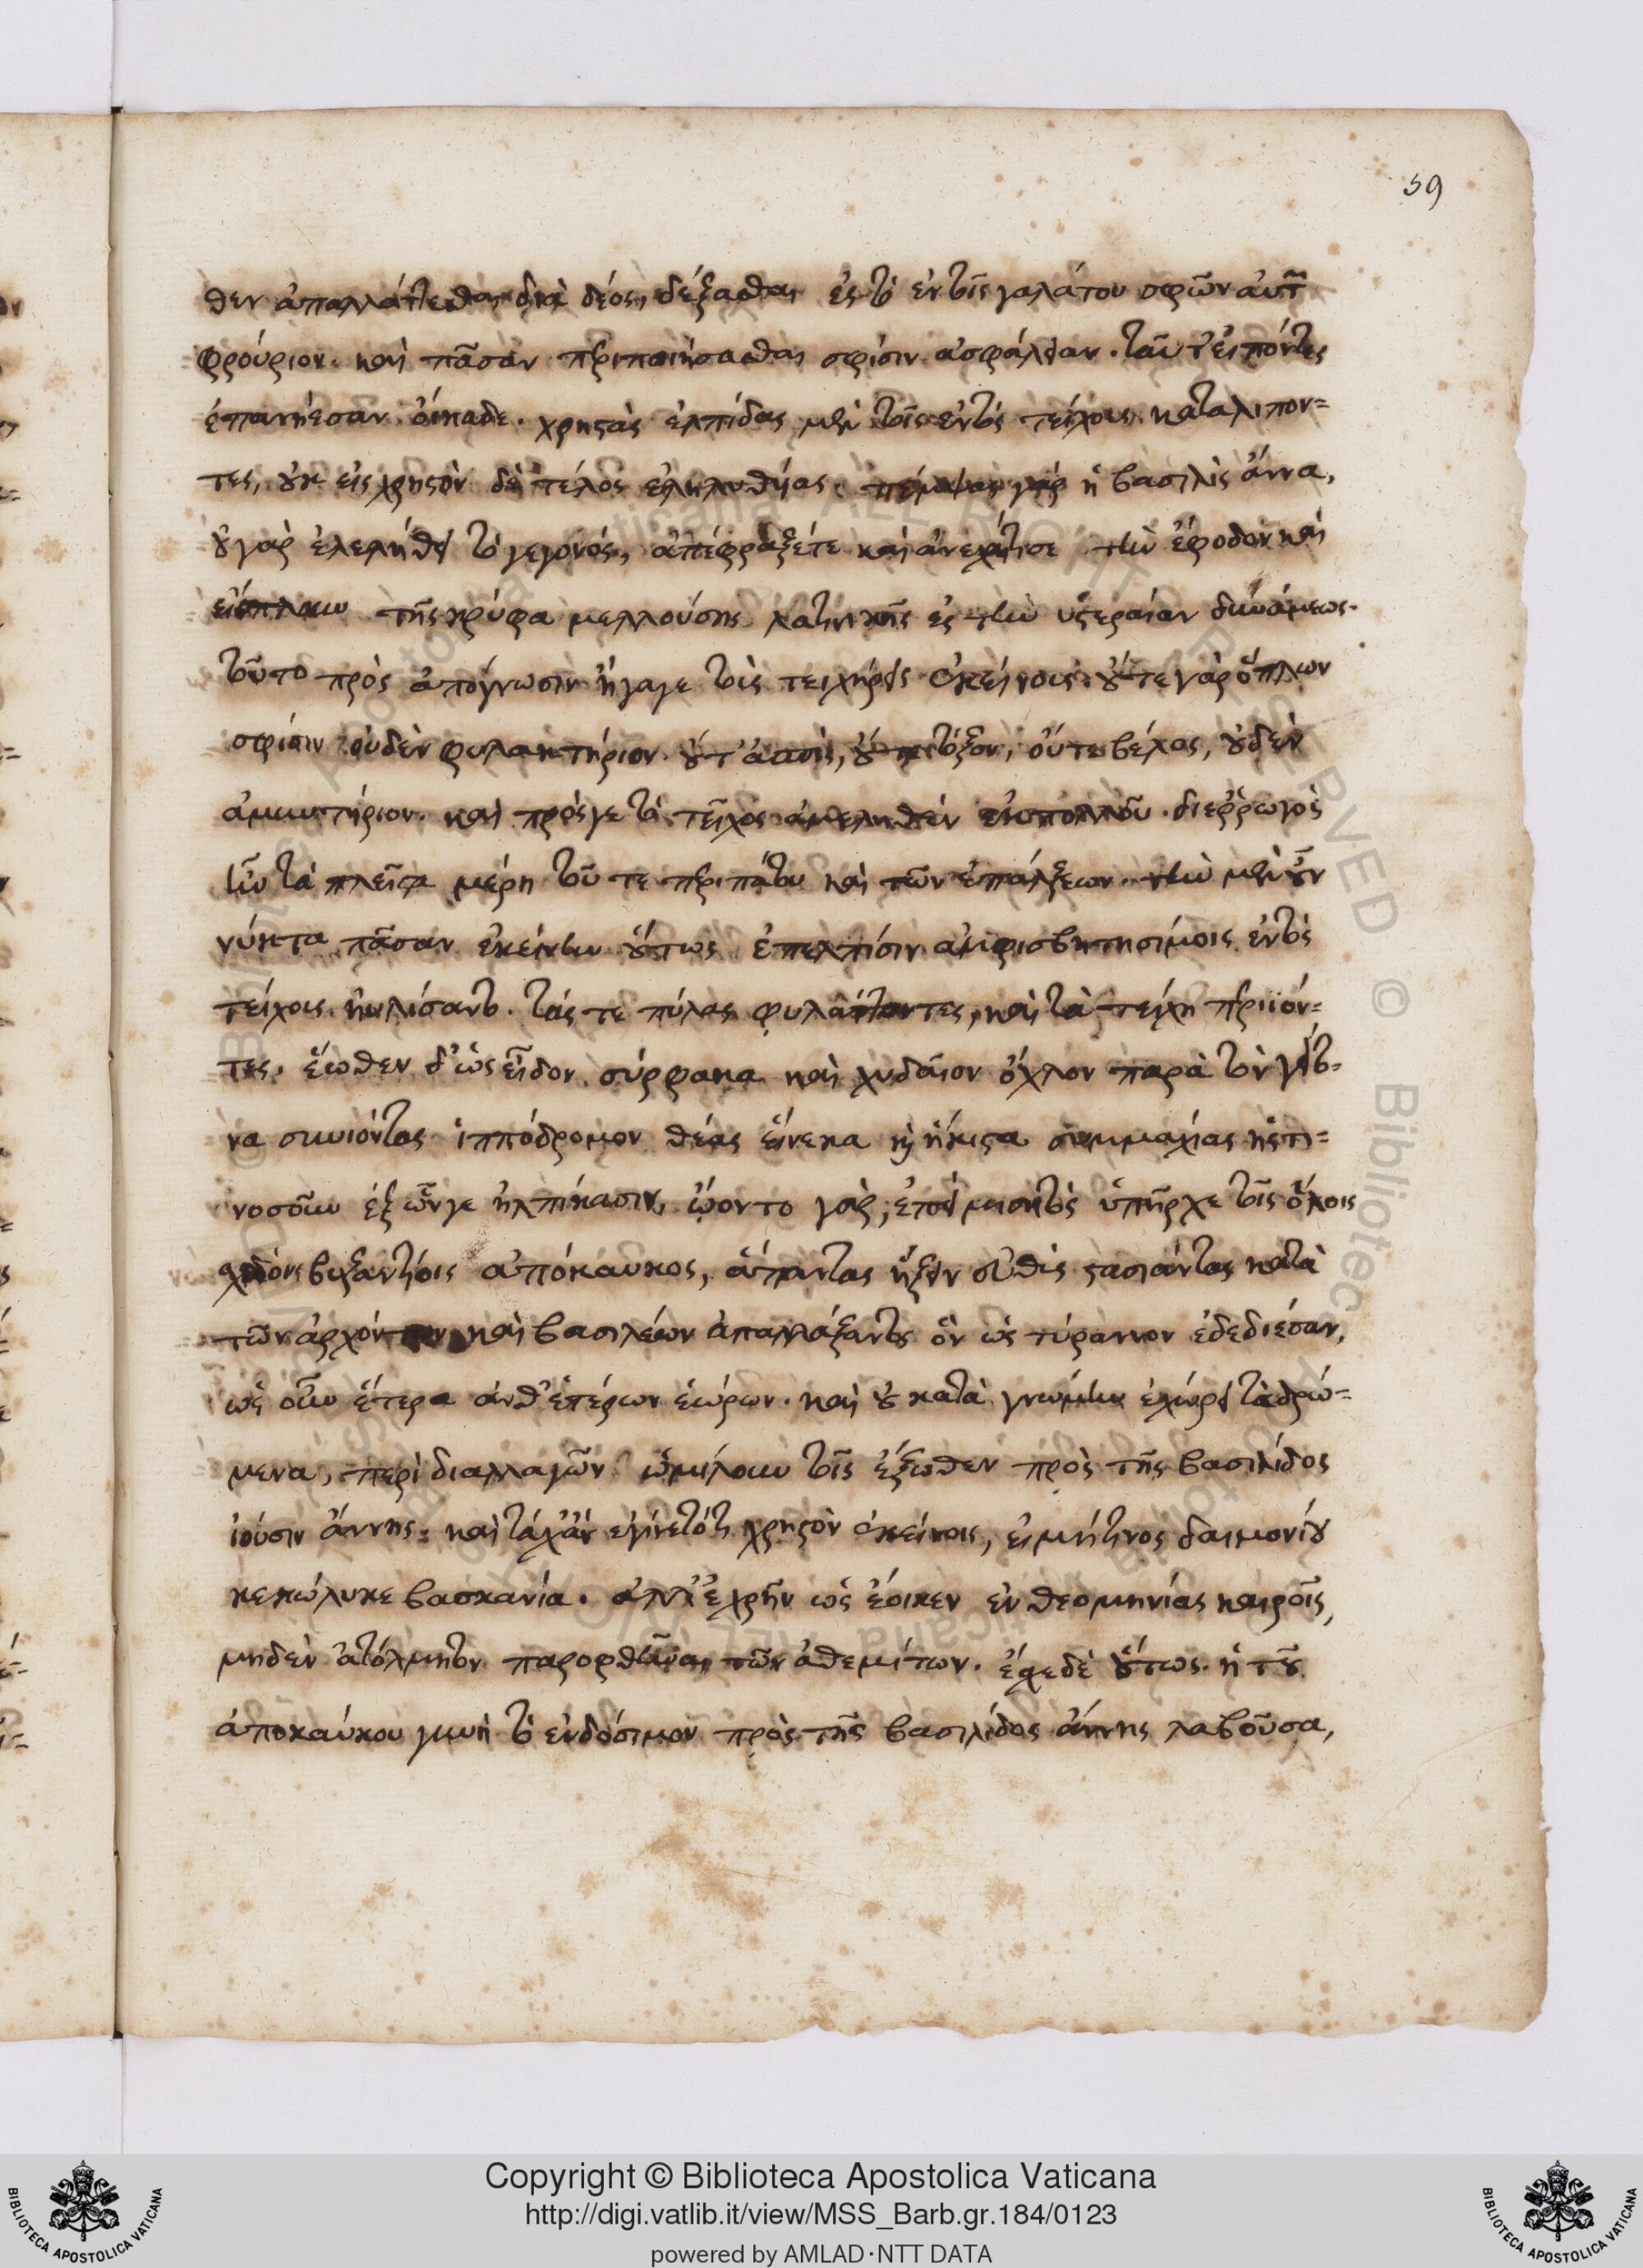 59
θεν ἀπαλλάττεσθαι διὰ δέος, δέξασθαι ἐς τὸ ἐν τοῖς γαλάτου σφῶν αὐτῶν
φρούριον. καὶ πᾶσαν περιποιήσασθαι σφίσιν ἀσφάλειαν. ταῦτ' εἰπόντες
ἐπανήεσαν οἴκαδε. χρηστὰς ἐλπίδας μὲν τοῖς ἐντὸς τείχους καταλιπόν=
τες, οὐκ εἰς χρηστὸν δὲ τέλος ἐληλυθυίας. πέμψασα γὰρ ἡ βασιλὶς ἄννα,
οὐ γὰρ ἐλελήθει τὸ γεγονός, ἀπέφραξέτε καὶ ἀνεχαίτισε τὴν ἔφοδον καὶ
εἴσπλουν τῆς κρύφα μελλούσης λατινικῆς ἐς τὴν ὑστεραίαν δυνάμεως.
τοῦτο πρὸς ἀπόγνωσιν ἤγαγε τοὺς τειχήρεις ἐκείνους. οὔτε γὰρ ὅπλων
σφίσιν οὐδὲν φυλακτήριον. οὔτ' ἀσπὶς, οὔτε τόξον, οὔτε βέλος, οὐδὲν
ἀμυντήριον. καὶ πρόσγε τὸ τεῖχος ἀμεληθὲν ἐκ πολλοῦ. διερρωγὸς
ἦν τὰ πλεῖστα μέρη τοῦ τε περιπάτου καὶ τῶν ἐπάλξεων. τὴν μὲν οὖν
νύκτα πᾶσαν ἐκείνην οὕτως ἐπ' ἐλπίσιν ἀμφισβητησίμοις ἐντὸς
τείχους ηὐλίσαντο. τάς τε πύλας φυλάττοντες, καὶ τὰ τείχη περιϊόν=
τες. ἕωθεν δ' ὡς εἶδον σύρφακα καὶ χυδαῖον ὄχλον παρὰ τὸν γείτο=
να συνιόντας ἱππόδρομον θέας εἵνεκα καὶ ἥκιστα συμμαχίας ἧστι=
νοσοῦν ἐξ ὧνγε ἠλπίκασιν, ᾤοντο γὰρ, ἐπεὶ μισητὸς ὑπῆρχε τοῖς ὅλοις
σχεδὸν βυζαντίοις ἀπόκαυκος, ἅπαντας ἥξειν εὐθὺς στασιάσαντας κατὰ
τῶν ἀρχόντων καὶ βασιλέων ἀπαλλάξαντος ὃν ὡς τύραννον ἐδεδίεσαν,
ὡς οὖν ἕτερα ἀνθ' ἑτέρων ἑώρων. καὶ οὐ κατὰ γνώμην ἐχώρει τὰ δρώ=
μενα, περὶ διαλλαγῶν ὡμίλουν τοῖς ἔξωθεν πρὸς τῆς βασιλίδος
ἰοῦσιν ἄννης. καὶ τάχ' ἂν ἐγίνετό τι χρηστὸν ἐκείνοις, εἰ μή τινος δαιμονίου
κεκώλυκε βασκανία. ἀλλ' ἐχρῆν ὡς ἔοικεν ἐν θεομηνίας καιροῖς,
μηδὲν ἀτόλμητον παρορθῆναι τῶν ἀθεμίτων. ἔσχε δὲ οὕτως. ἡ τοῦ
ἀποκαύκου γυνὴ τὸ ἐνδόσιμον πρὸς τῆς βασιλίδος ἄννης λαβοῦσα,
Copyright © Biblioteca Apostolica Vaticana
http://digi.vatlib.it/view/MSS_Barb.gr.184/0123
powered by AMLAD·NTT DATA
BIBLIOTECA APOSTOLICA VATICANA
BIBLIOTECA APOSTOLICA VATICANA